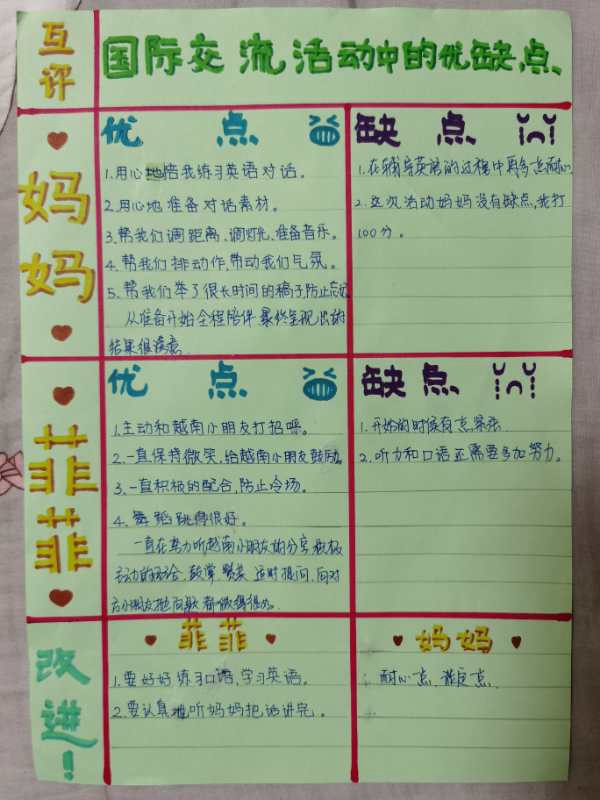 互评
国际交流活动中的优缺点
妈妈
优点
1.用心地陪我练习英语对话。
2.用心地准备对话素材。
3.帮我们调距离、调灯光、准备音乐。
4.帮我们排动作,带动我们气氛。
5.帮我们举了很长时间的稿子,防止忘记
从准备开始全程陪伴 最终呈现出的
结果很满意
缺点
1.在辅导英语的过程中再多点耐心
2.这次活动妈妈没有缺点,我打
100分。
菲菲
优点
1.主动和越南小朋友打招呼。
2.一直保持微笑,给越南小朋友鼓励
3.一直积极的配合,防止冷场。
4.舞蹈跳得很好。
一直在努力听越南小朋友的分享 积极
主动的 鼓掌 适时提问,
都做得很好。
缺点
1.开始的时候有点紧张
2.听力和口语还需要多加努力。
改进!
菲菲
1.要好好练习口语,学习英语。
2.要认真地听妈妈把话讲完。
妈妈
耐心点